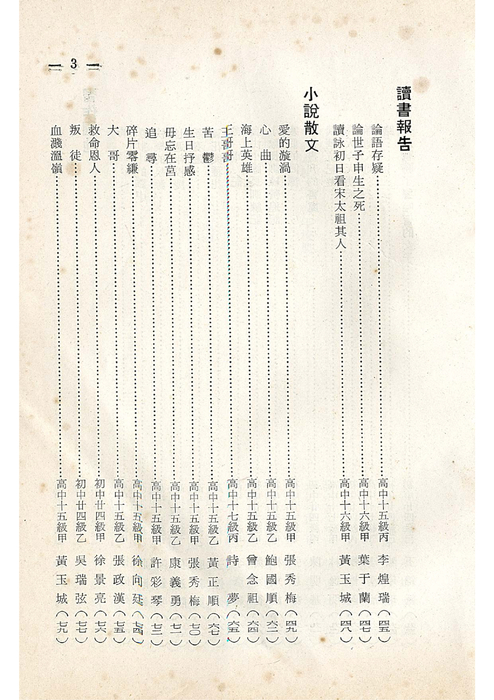 讀書報告
論語存疑 高中十五級丙 李煌瑞(四五)
論世子申生之死 高中十六級甲 葉于蘭(四七)
讀詠初日看宋太祖其人 高中十六級甲 黃玉城(四八)
小說散文
愛的漩渦 高中十五級甲 張秀梅(四九)
心曲 高中十五級乙 鮑國順(六二)
海上英雄 高中十五級乙 曾念祖(六四)
王哥哥 高中十七級丙 詩夢(六五)
苦鬱 高中十五級甲 黃正順(六七)
生日抒感 高中十五級甲 張秀梅(七〇)
毋忘在莒 高中十五級乙 康義勇(七一)
追尋 高中十五級甲 許彩琴(七三)
碎片零縑 高中十五級甲 徐向廷(七四)
大哥 高中十五級乙 張政漢(七五)
救命恩人 初中廿四級甲 徐景亮(七六)
叛徒 初中廿四級乙 吳瑞弦(七七)
血濺溫嶺 高中十五級甲 黃玉城(七九)
3